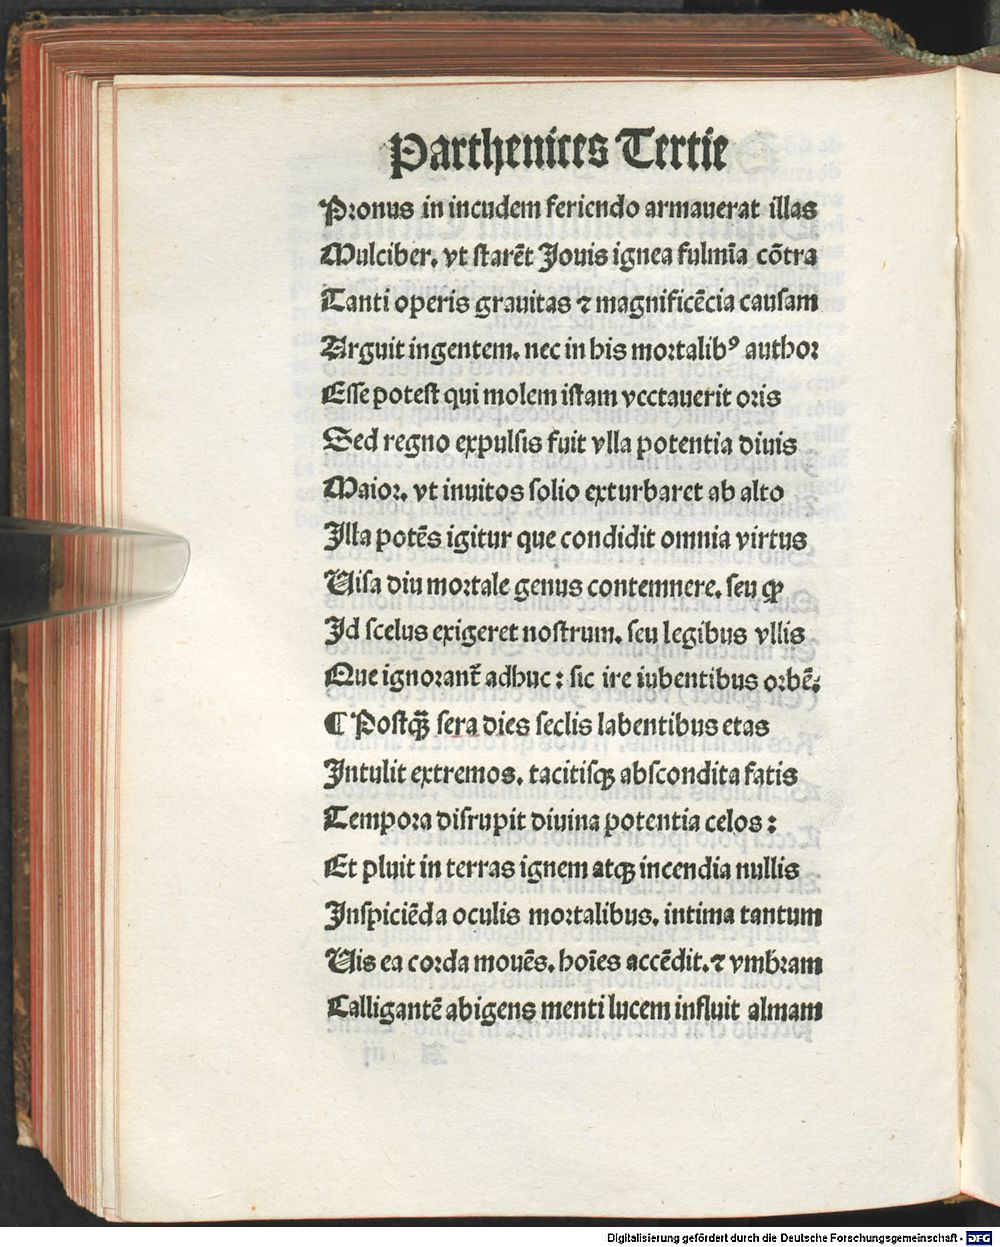 Parthenices Tertie
Pronus in incudem feriendo armauerat illas
Mulciber. vt starēt Jouis ignea fulmīa cōtra
Tanti operis grauitas ⁊ magnificēcia causam
Arguit ingentem. nec in his mortalibꝰ author
Esse potest qui molem istam vectauerit oris
Sed regno expulsis fuit vlla potentia diuis
Maior. vt inuitos solio exturbaret ab alto
Illa potēs igitur que condidit omnia virtus
Uisa diu mortale genus contemnere. seu ꝙ
Id scelus exigeret nostrum. seu legibus vllis
Que ignorant̄ adhuc: sic ire iubentibus orbē:
¶ Postq̄ƺ sera dies seclis labentibus etas
Intulit extremos. tacitisqƺ abscondita fatis
Tempora disrupit diuina potentia celos:
Et pluit in terras ignem atqƺ incendia nullis
Inspiciēda oculis mortalibus. intima tantum
Uis ea corda mouēs. hoīes accēdit. ⁊ vmbram
Calligantē abigens menti lucem influit almam
Digitalisierung gefördert durch die Deutsche Forschungsgemeinschaft - DFG